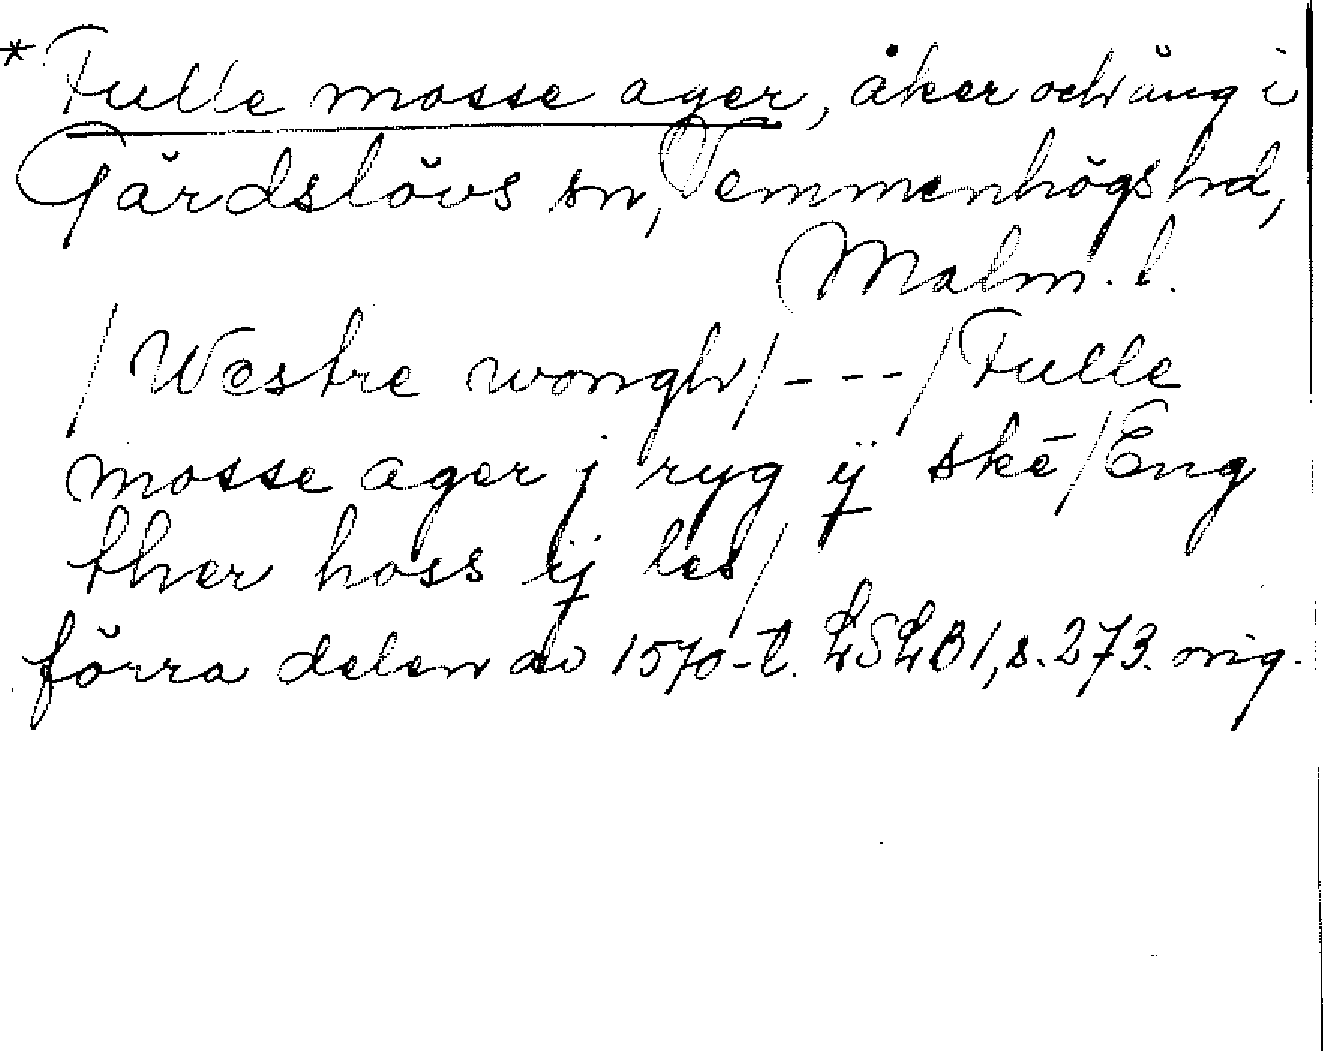 * Fulle mosse ager, åker och äng i
Gärdslövs sn, Vemmenhögs hd,
Malm. l.
/Westre wongh/---/Fulle
mosse ager j ryg ij skē/Eng
ther hoss ij les/
förra delen av 1570-t. LSLB 1, s. 273. orig.